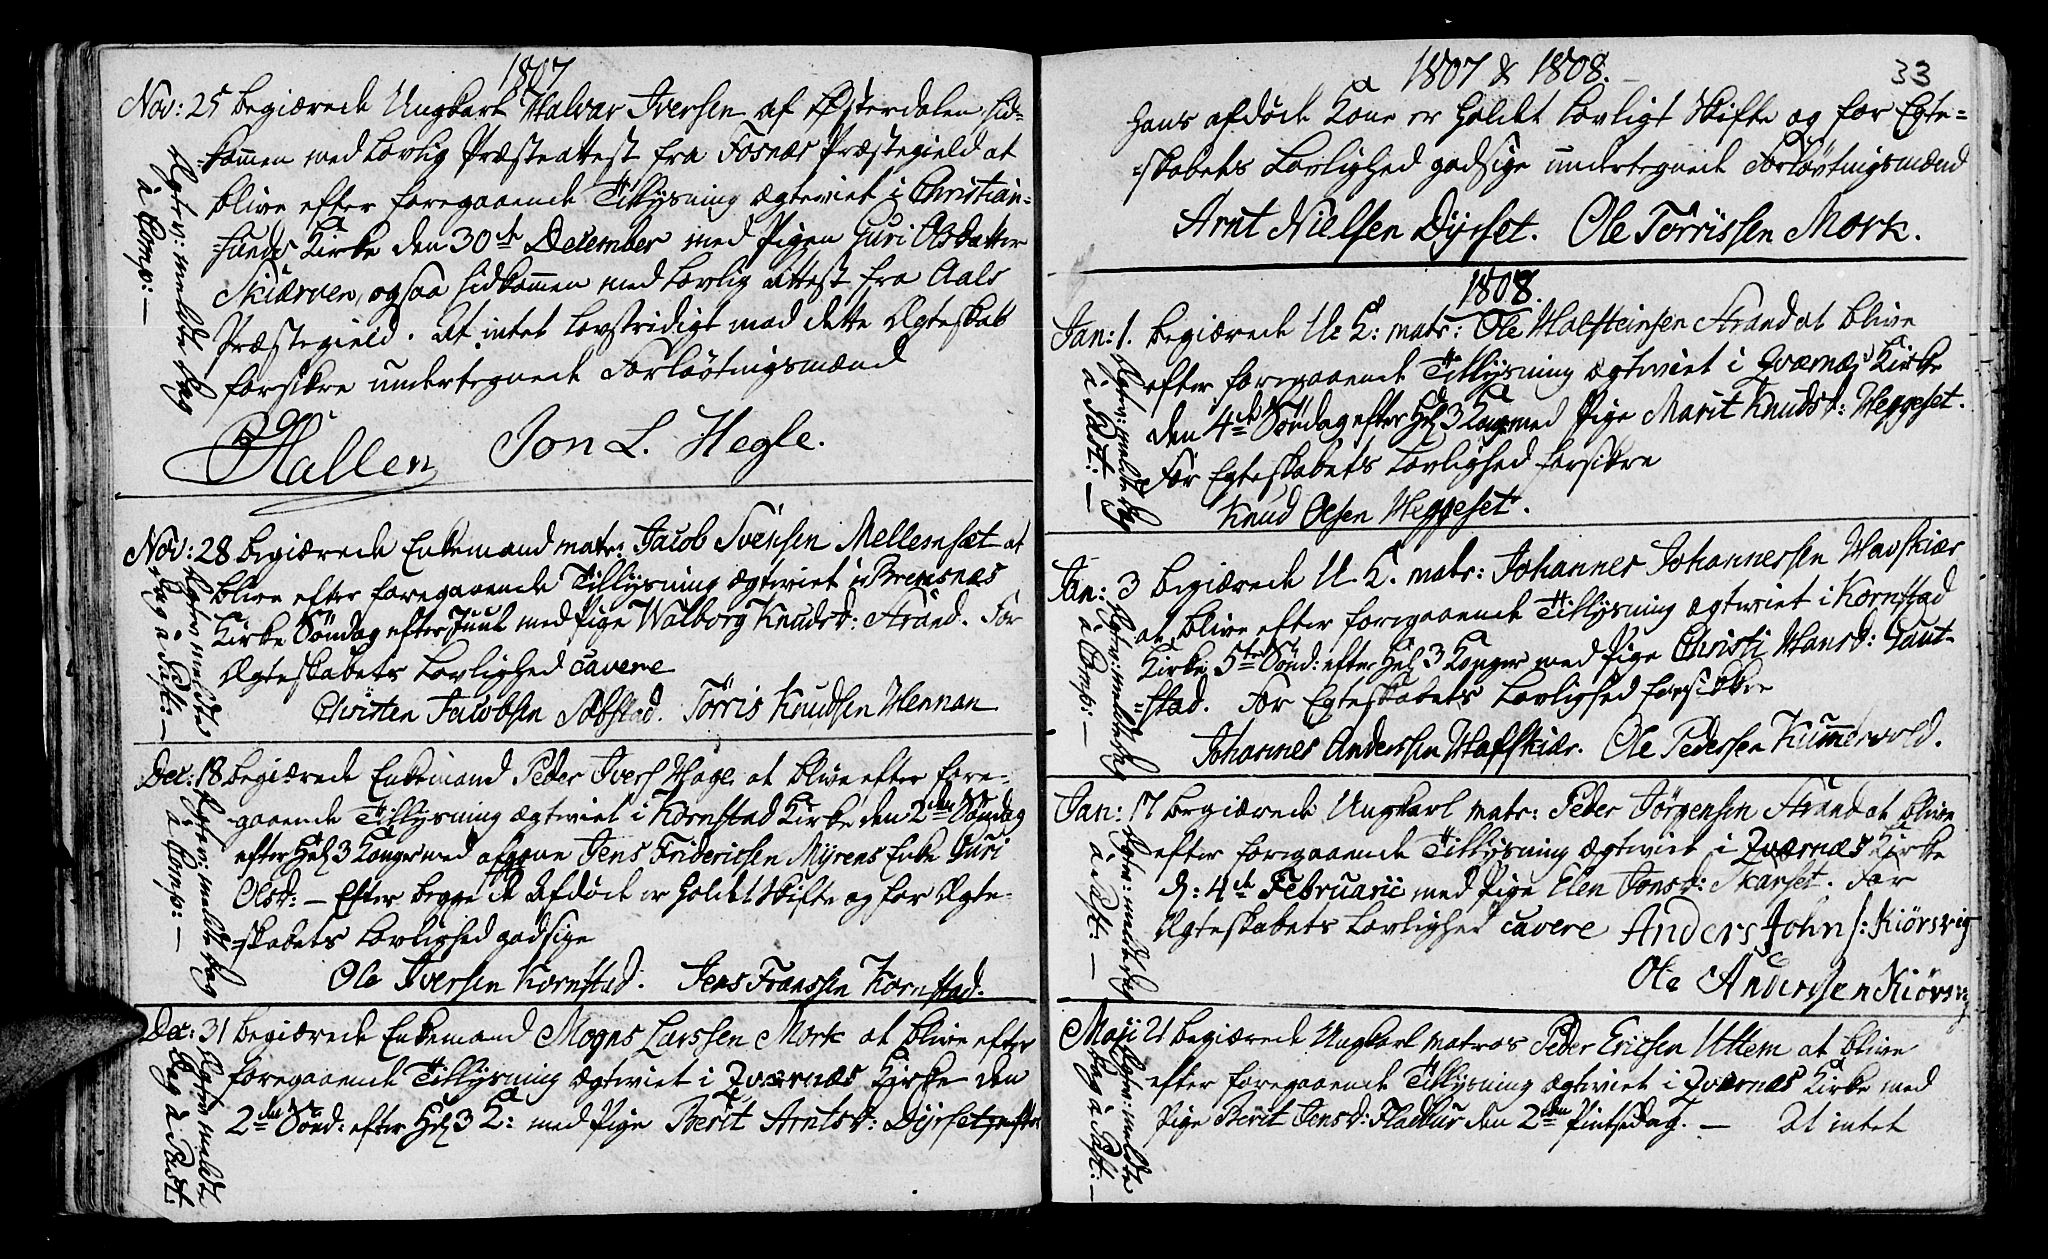 1807
Nov: 25 begiærede Ungkarl Halvar Iversen af Østerdalen hid-
kommen med lovlig Præsteattest fra Fosnæs Præstegield at
blive efter foregaaende Tillysning ægteviet i Christian-
sunds Kirke den 30te December med Pigen Guri Olsdatter
Skiærven, ogsaa hidkommen med lovlig attest fra Aals
Præstegield. At intet lovstridigt mod dette Ægteskab
forsikre undertegnede Forlovningsmænd
Hallen Jon L. Hegle.
Ægtev: meldte dag
à Cop: —
Nov: 28 begiærede Enkemand matr: Jacob Svensen Mellemsæt at
blive efter foregaaende Tillysning ægteviet i Bremsnæs
Kirke Søndag efter Juul med Pige Walborg Knudsd: Strand. For
Ægteskabets Lovlighed cavere
Christen Jacobsen Sæbstad. Törris Knudsen Hennan
Ægtev: meldte
dag à —
Dec: 18 begiærede Enkemand Peder Ivers Hage at blive efter fore-
gaaende Tillysning ægteviet i Kornstad Kirke den 2den Søndag
efter Hel 3 Konger med afgane Jens Fridericsen Myrens Enke Guri
Olsd: — Efter begge de Afdøde er holdt Skifte og for Ægte-
skabets Lovlighed godsige
Ole Iversen Kornstad. Jens Franssen Kornstad.
Ægtev: meldte dag
à Cop: —
Dec: 31 begiærede Enkemand Mogns Larssen Mork at blive efter
foregaaende Tillysning ægteviet i Qværnæs Kirke den
2den Sønd: efter Hel 3 K: med Pige Berit Arntsd: Dyrset, efter
Ægtev: meldte
dag à
1807 & 1808. 33
hans afdøde Kone er holdt lovligt Skifte og for Egte-
skabets Lovlighed godsige undertegnede Forlovningsmænd
Arnt Nielsen Dyrset. Ole Törrissen Mork.
1808.
Jan: 1. begiærede U. K: matr: Ole Halsteinsen Strand at blive
efter foregaaende Tillysning ægteviet i Qværnæs Kirke
den 4de Søndag efter Hel 3 Kong med Pige Marit Knudsd: Heggeset.
For Egteskabets Lovlighed forsikre
Knud Olsen Heggeset.
Ægtev: meldte dag
à —
Jan: 3 begiærede U. K. matr: Johannes Johannessen Havskiær
at blive efter foregaaende Tillysning ægteviet i Kornstad
Kirke 5te Sønd: efter Hel 3 Konger med Pige Christi Hansd: Gaut-
stad. For Egteskabets Lovlighed forsikkre
Johannes Anderssen Hafskiær. Ole Pedersen Kummervold.
Ægtev: meldte dag
à Cop: —
Jan: 17 begiærede Ungkarl matr: Peder Jörgensen Strand at blive
efter foregaaende Tillysning ægteviet i Qværnæs Kirke
d: 4de Februarii med Pige Elen Jonsd: Skarset. For
Ægteskabets Lovlighed cavere Anders John s: Kiörsvig
Ole Anderssen Kiörsvig
Ægtev: meldte dag
à —
Maji 21 begiærede Ungkarl matros Peder Ericsen Uttem at blive
efter foregaaende Tillysning ægteviet i Qværnæs Kirke med
Pige Berit Jensd: Flatsur den 2den Pintsedag. — At intet
Ægtev: meldte
dag à —